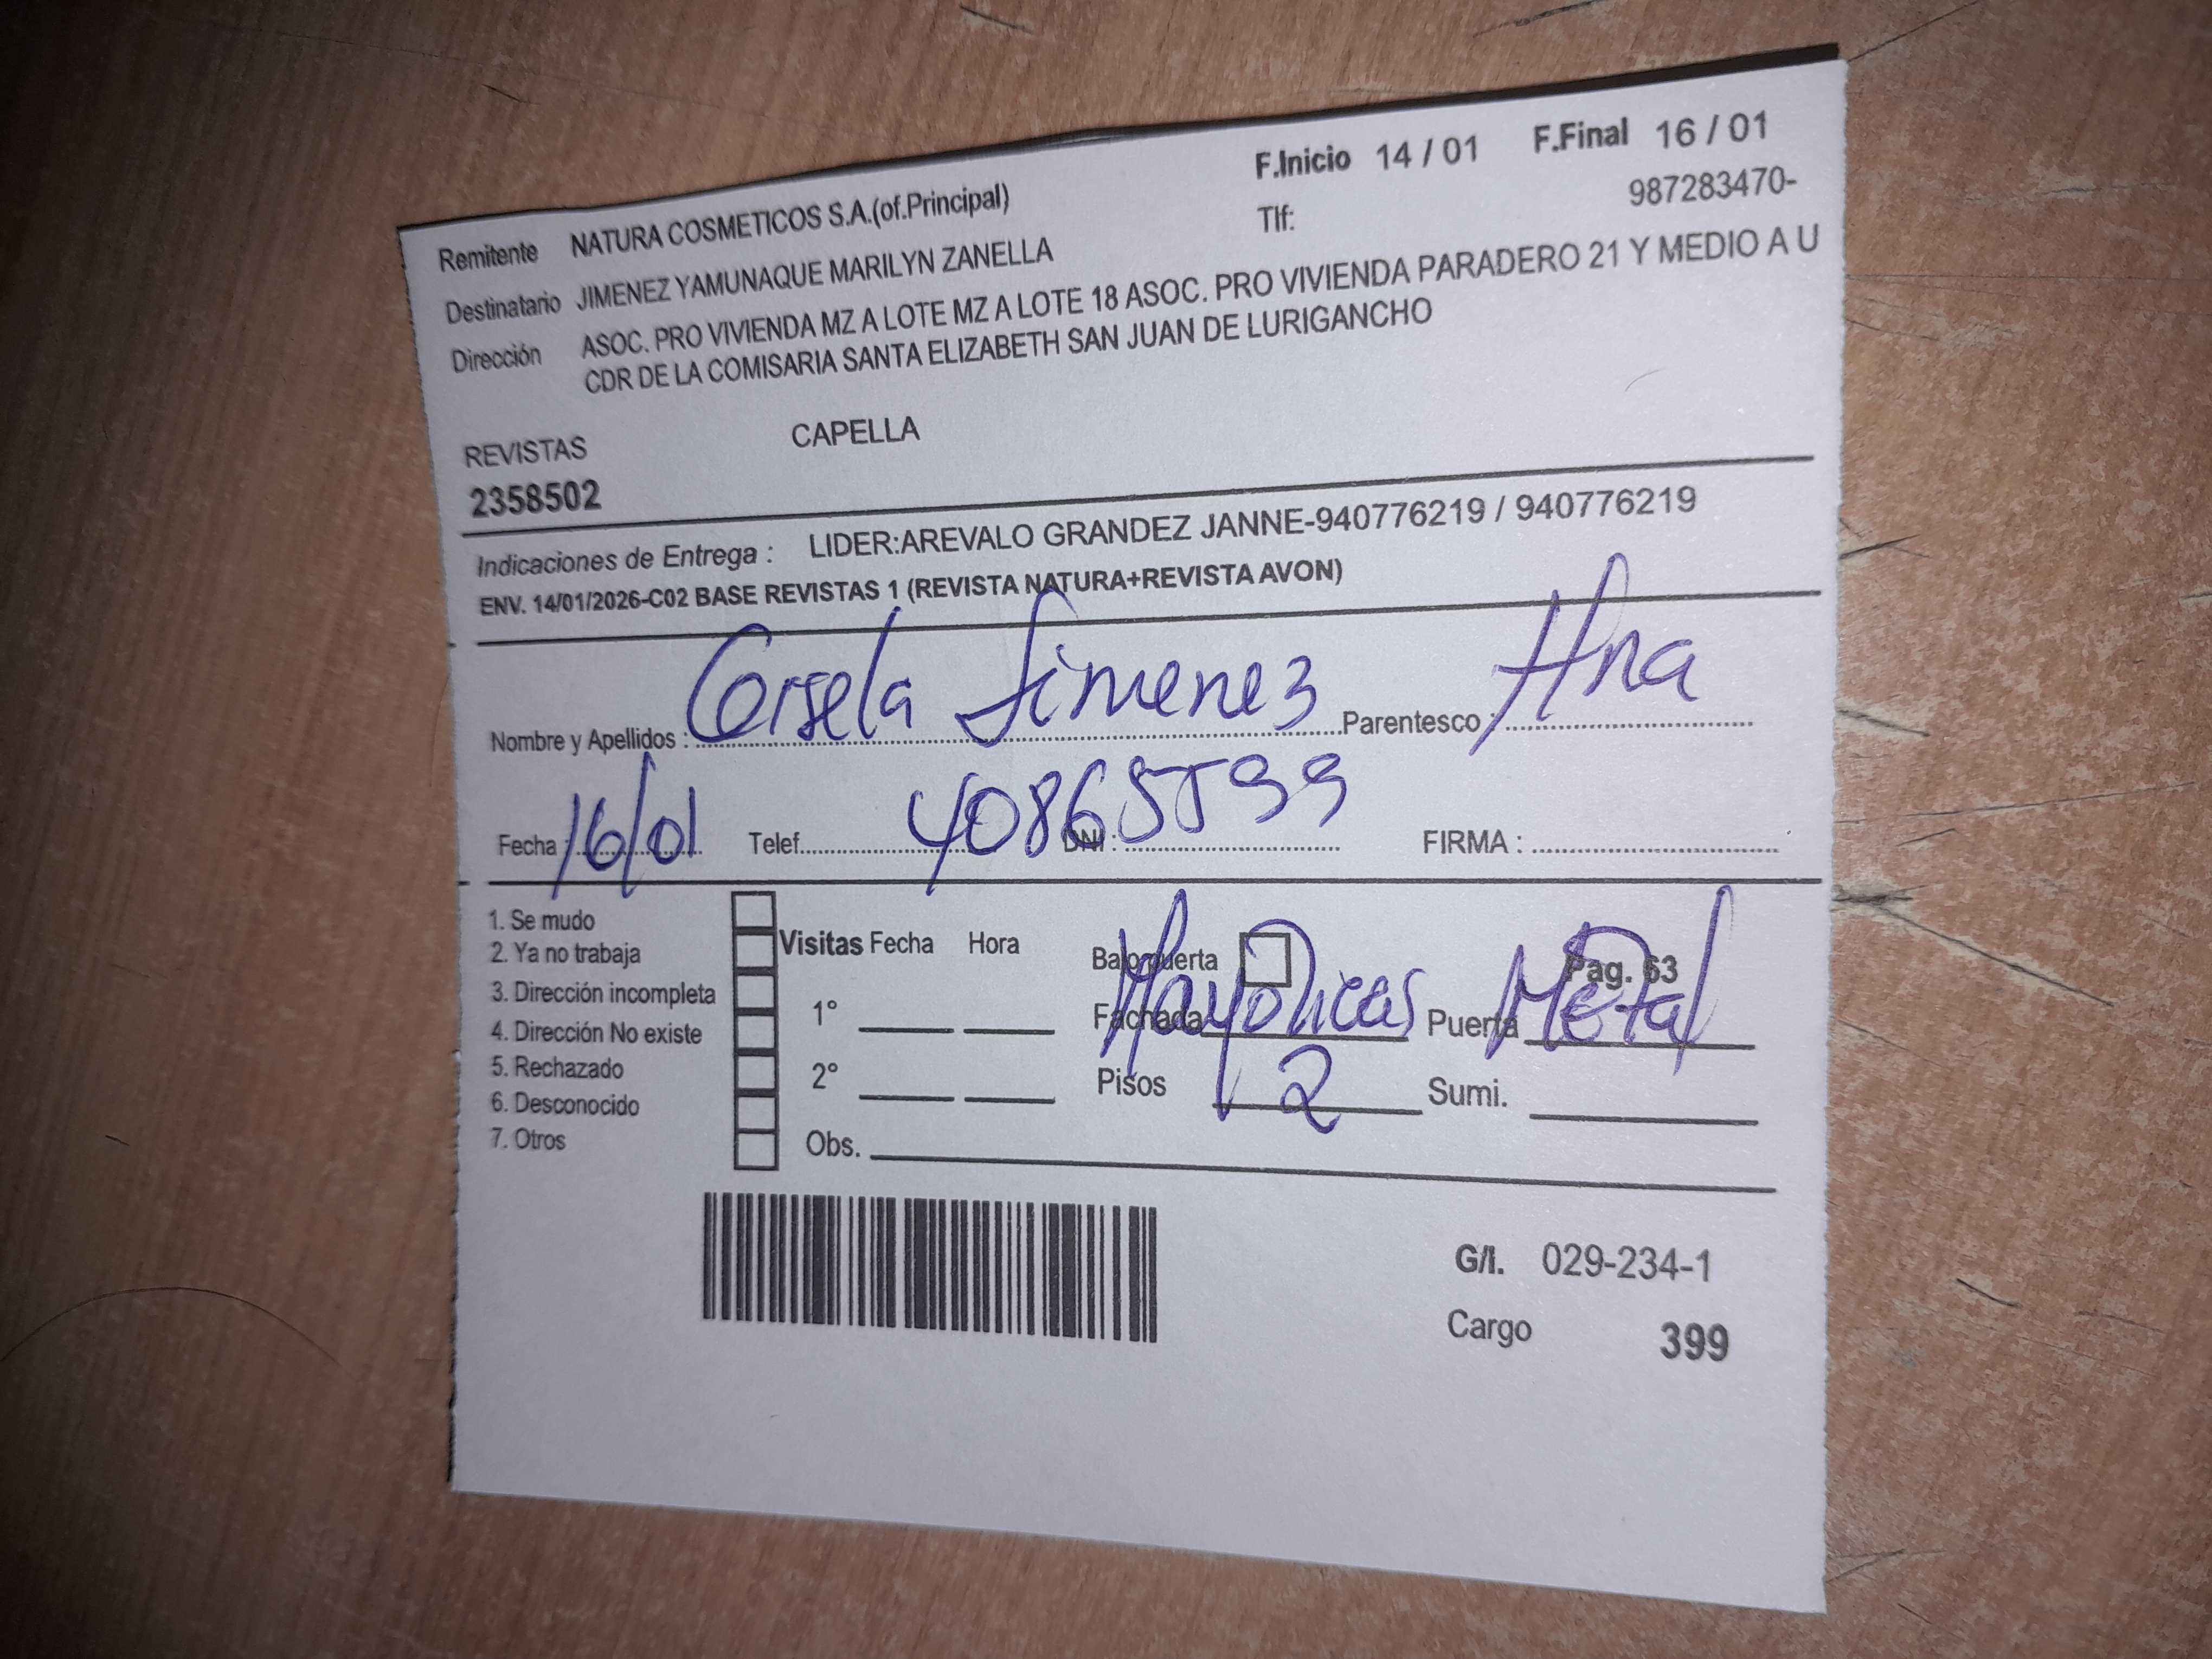 F.Inicio 14 / 01 F.Final 16 / 01
Remitente NATURA COSMETICOS S.A.(of.Principal) Tlf: 987283470-
Destinatario JIMENEZ YAMUNAQUE MARILYN ZANELLA
Dirección ASOC. PRO VIVIENDA MZ A LOTE MZ A LOTE 18 ASOC. PRO VIVIENDA PARADERO 21 Y MEDIO A U
CDR DE LA COMISARIA SANTA ELIZABETH SAN JUAN DE LURIGANCHO
REVISTAS CAPELLA
2358502
Indicaciones de Entrega : LIDER:AREVALO GRANDEZ JANNE-940776219 / 940776219
ENV. 14/01/2026-C02 BASE REVISTAS 1 (REVISTA NATURA+REVISTA AVON)
Nombre y Apellidos : Gisela Jimenez Parentesco : Hna
Fecha : 16/01 Telef. DNI : 40865599 FIRMA :
1. Se mudo
2. Ya no trabaja Visitas Fecha Hora Bajo puerta Pag. 63
3. Dirección incompleta 1° Fachada Mayolicas Puerta Metal
4. Dirección No existe
5. Rechazado 2° Pisos 2 Sumi.
6. Desconocido
7. Otros Obs.
G/I. 029-234-1
Cargo 399